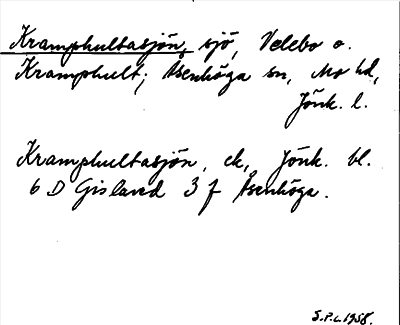 Kramphultasjön, sjö, Velebo o.
Kramphult; Åsenhöga sn, Mo hd,
Jönk. l.
Kramphultasjön, ek, Jönk. bl.
6 D Gislaved 3 f Åsenhöga.
S.P.L. 1958.